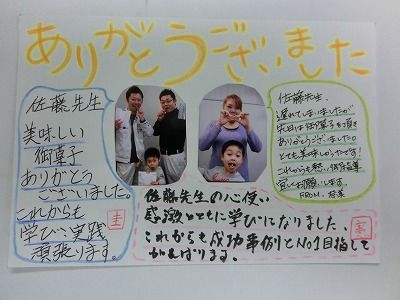 ありがとうございました
佐藤先生
美味しい
御菓子
ありがとう
ございました。
これからも
学び、実践
頑張ります。
圭
佐藤先生.
遅れていましたが
先日は御菓子を頂き
ありがとうございました。
とても美味しかったです!
これからも
宜しくお願いします。
FROM.
佐藤先生の心使い
感激とともに学びになりました、
これからも成功事例とNo1目指して
がんばります。